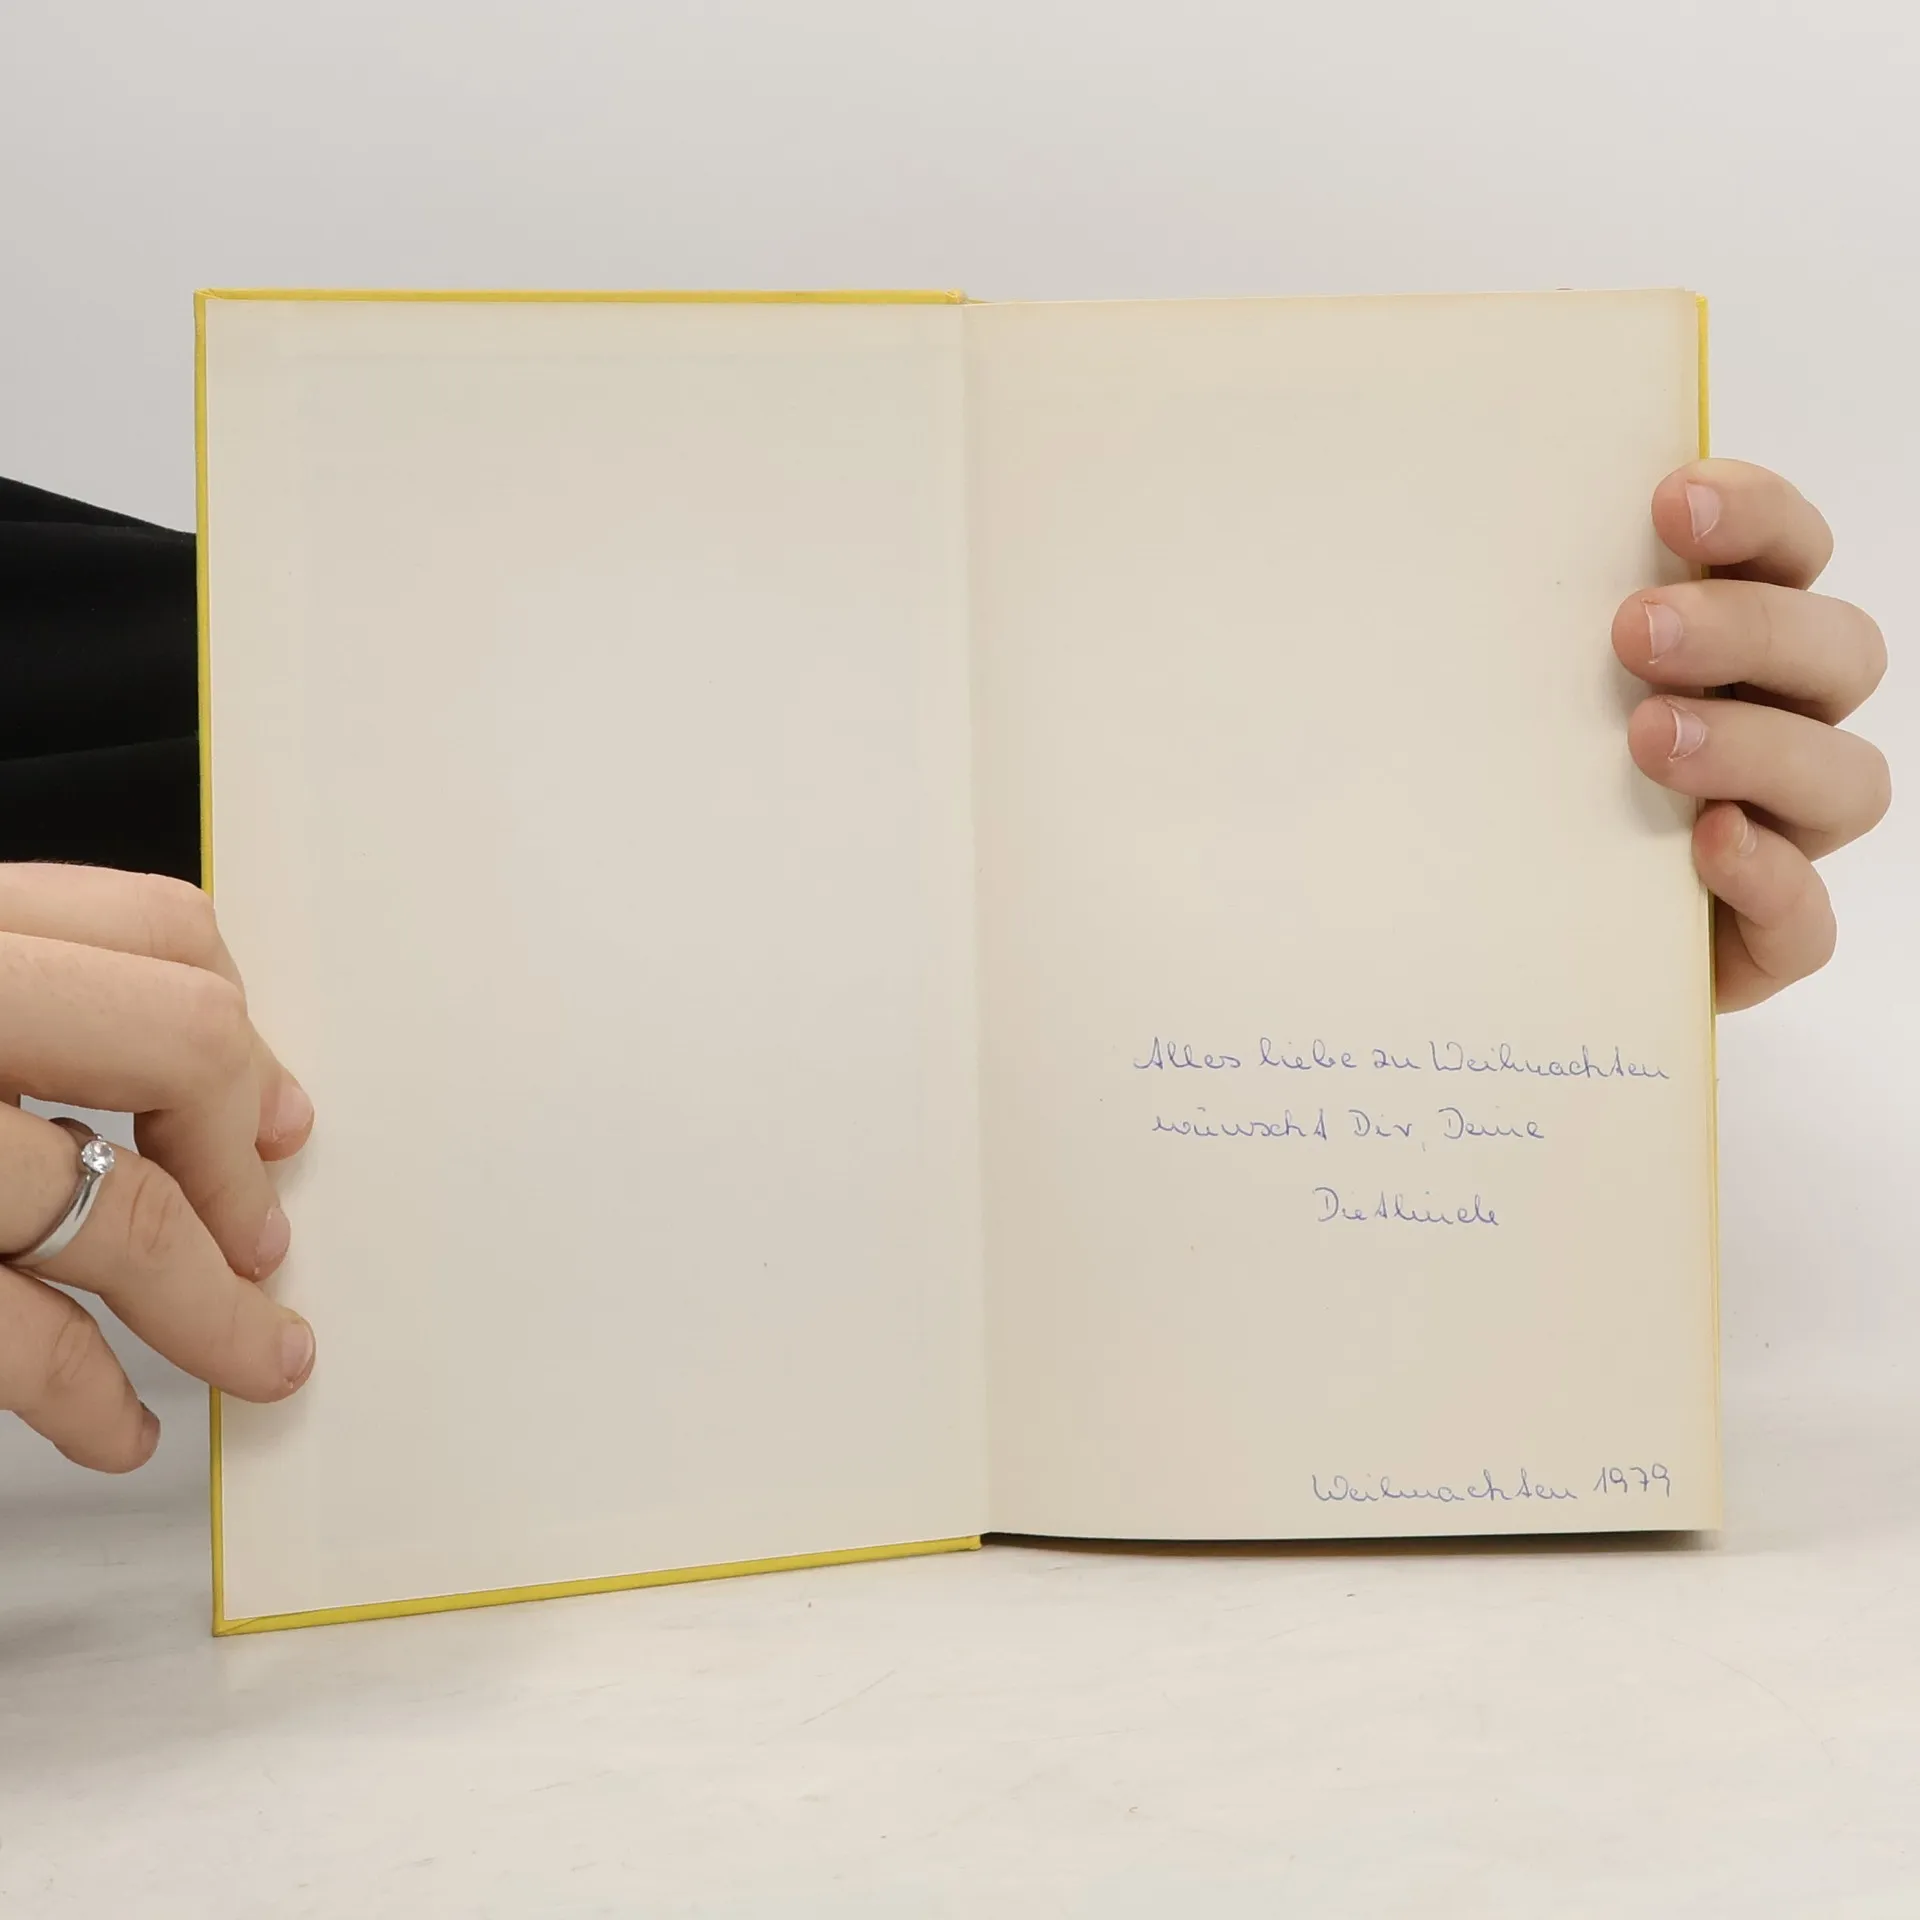 Alles liebe zu Weihnachten
wünscht Dir, Deine
Dietlinde
Weihnachten 1979